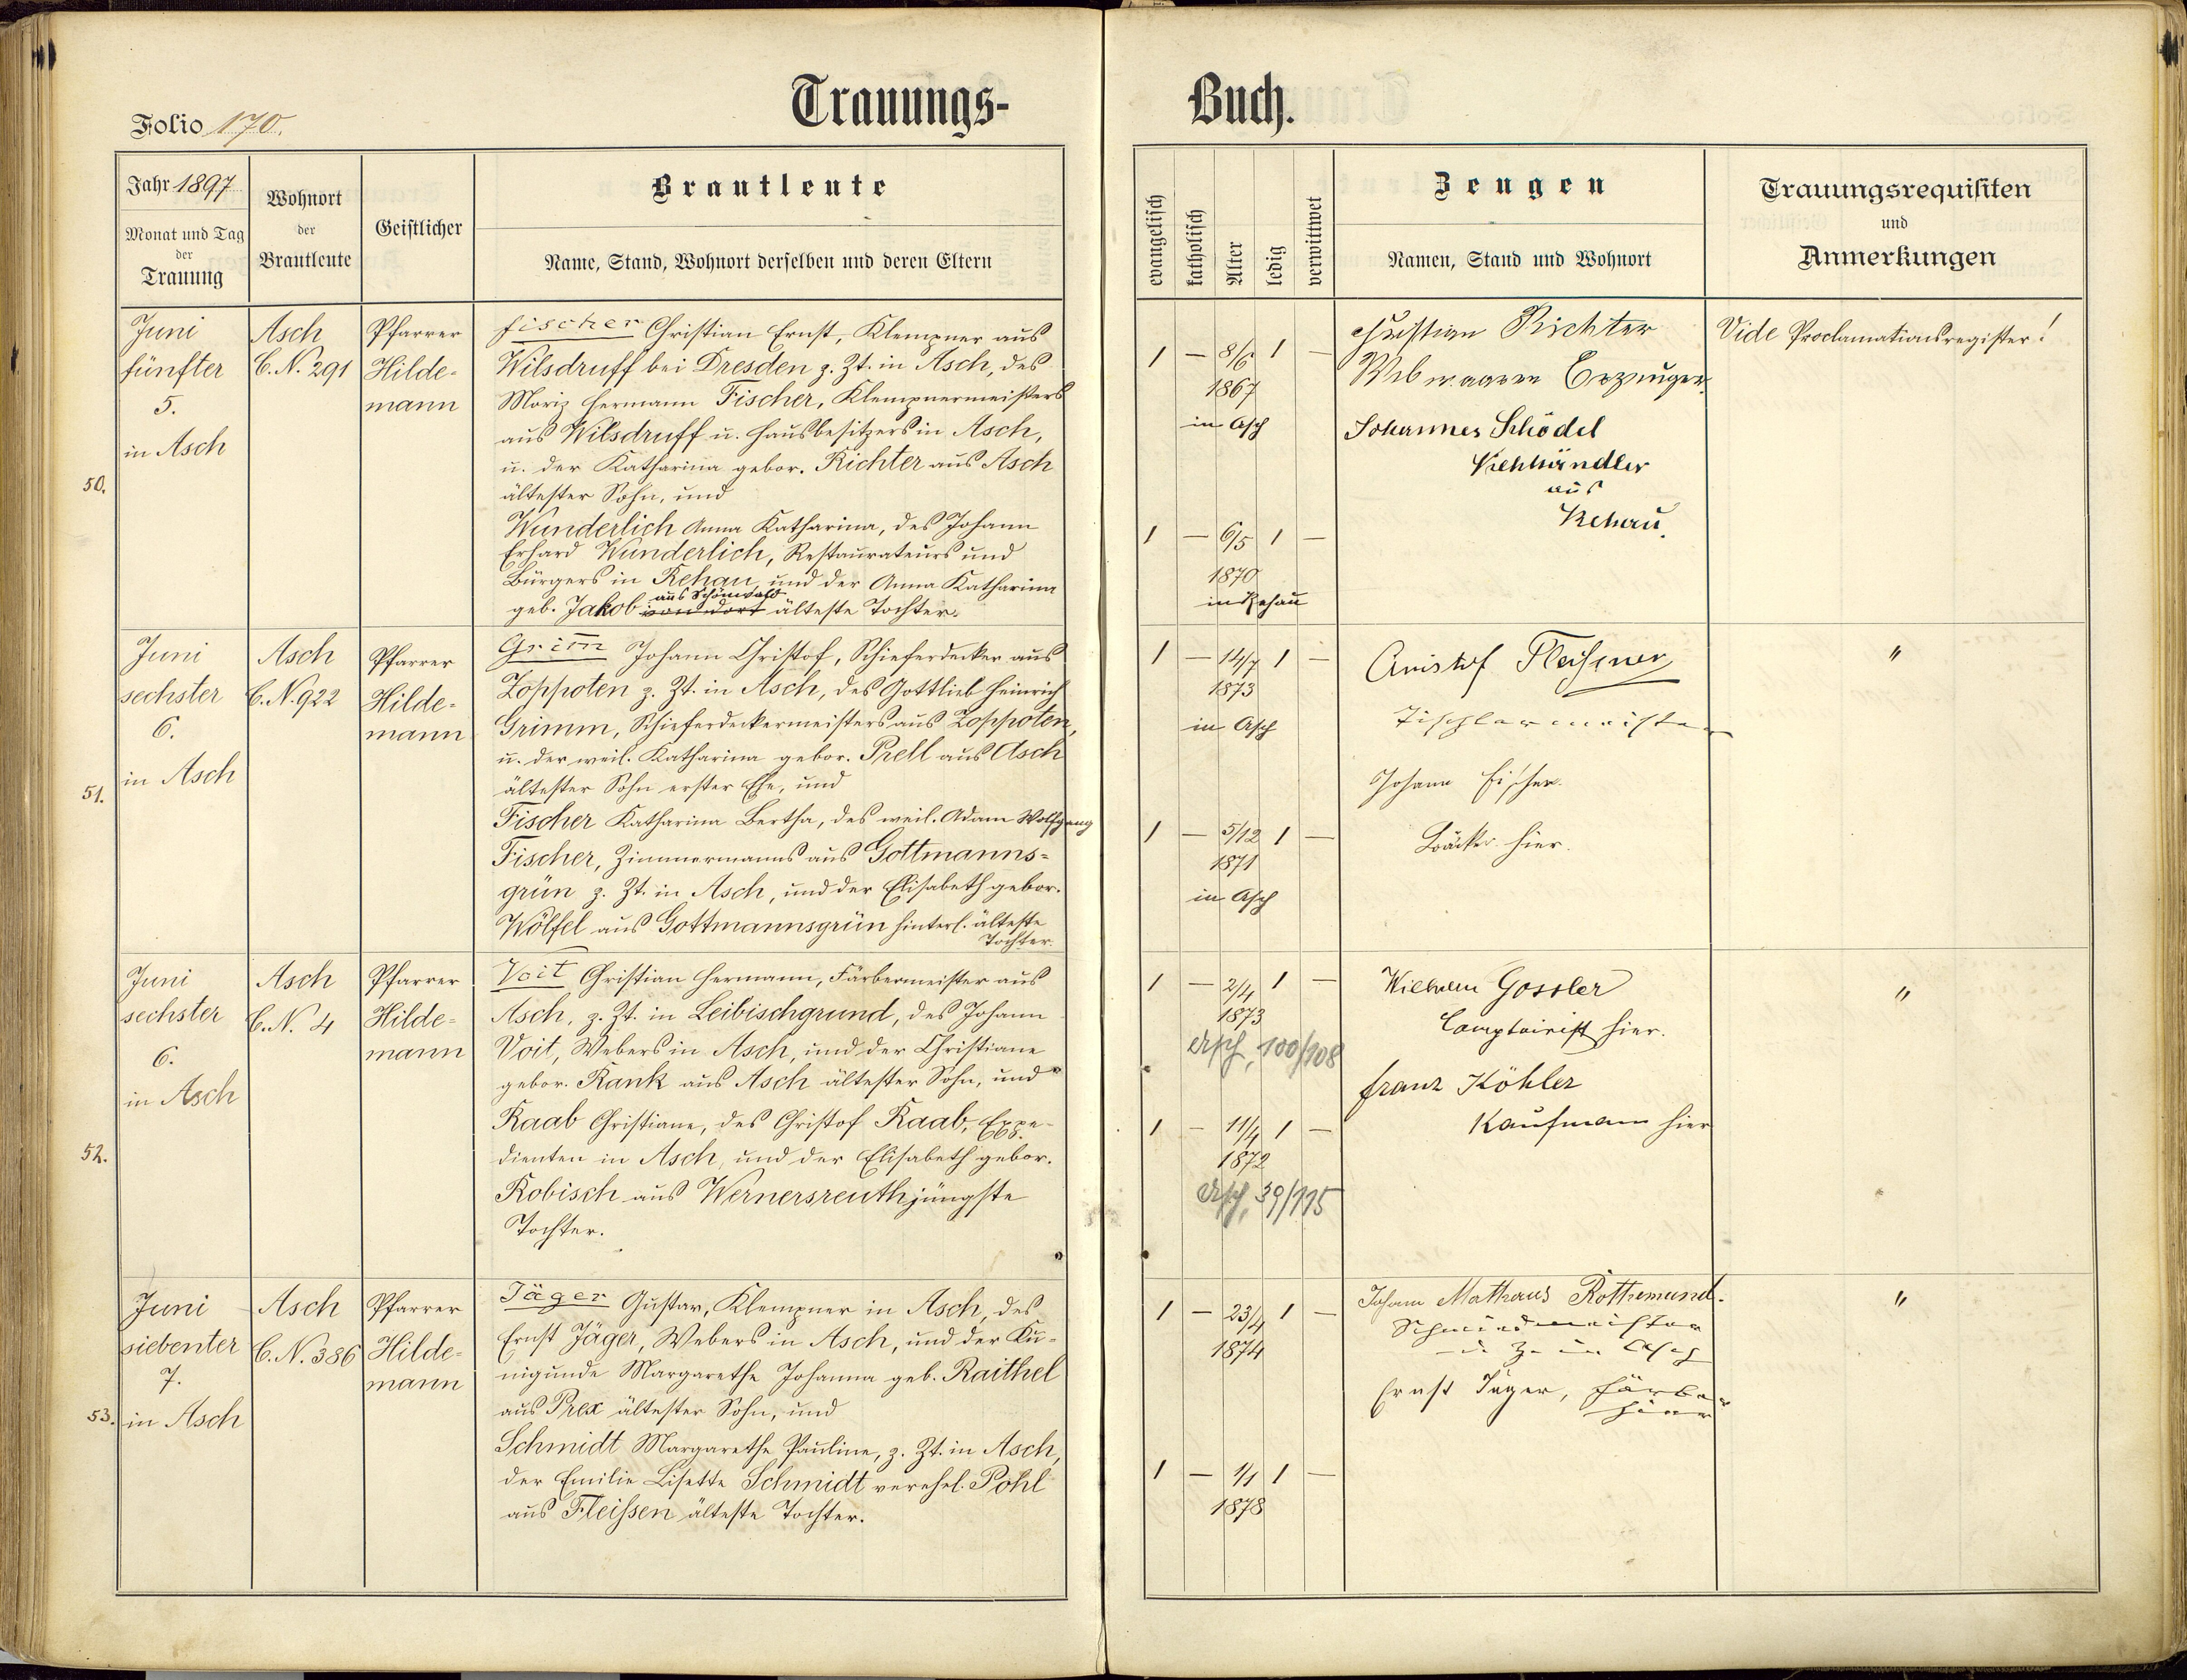 Trauungs-Buch.
Folio 170.
Jahr 1897
Monat und Tag
der
Trauung
Wohnort
der
Brautleute
Geistlicher
Brautleute
Name, Stand, Wohnort derselben und deren Eltern
evangelisch
katholisch
Alter
ledig
verwittwet
Zeugen
Namen, Stand und Wohnort
Trauungsrequisiten
und
Anmerkungen
50.
Juni
fünfter
5.
in Asch
Asch
C.N. 291
Pfarrer
Hilde-
mann
Fischer Christian Ernst, Klempner aus
Wilsdruff bei Dresden z. Zt. in Asch, des
Moriz Hermann Fischer, Klempnermeisters
aus Wilsdruff u. Hausbesitzers in Asch,
u. der Katharina gebor. Richter aus Asch
ältester Sohn, und
Wunderlich Anna Katharina, des Johann
Erhard Wunderlich, Restaurateurs und
Bürgers in Rehau, und der Anna Katharina
aus Schönwald
geb. Jakob von dort älteste Tochter.
1 — 8/6 1 —
1867
in Asch
1 — 6/5 1 —
1870
in Rehau
Christian Richter
Webwaaren Erzeuger
Johannes Schödel
Viehhändler
aus
Rehau.
Vide Proclamationsregister!
51.
Juni
sechster
6.
in Asch
Asch
C.N. 922
Pfarrer
Hilde-
mann
Grim̄ Johann Christof, Schieferdecker aus
Zoppoten z. Zt. in Asch, des Gottlieb Heinrich
Grimm, Schieferdeckermeisters aus Zoppoten,
u. der weil. Katharina gebor. Prell aus Asch
ältester Sohn erster Ehe, und
Fischer Katharina Bertha, des weil. Adam Wolfgang
Fischer, Zimmermanns aus Gottmanns-
grün z. Zt. in Asch, und der Elisabeth gebor.
Wölfel aus Gottmannsgrün hinterl. älteste
Tochter.
1 — 14/7 1 —
1873
in Asch
1 — 5/12 1 —
1871
in Asch
Christof Fleißner
Tischlermeister
Johann Fischer.
Bäcker hier.
"
52.
Juni
sechster
6.
in Asch
Asch
C.N. 4
Pfarrer
Hilde-
mann
Voit Christian Hermann, Färbermeister aus
Asch, z. Zt. in Leibischgrund, des Johann
Voit, Webers in Asch, und der Christiane
gebor. Rank aus Asch ältester Sohn, und
Raab Christiane, des Christof Raab, Expe-
dienten in Asch, und der Elisabeth gebor.
Robisch aus Wernersreuth jüngste
Tochter.
1 — 2/4 1 —
1873
Asch, 100/108
1 — 11/4 1 —
1872
Asch, 39/115
Wilhelm Gossler
Comptoirist hier.
Franz Köhler
Kaufmann hier
"
53.
Juni
siebenter
7.
in Asch
Asch
C.N. 386
Pfarrer
Hilde-
mann
Jäger Gustav, Klempner in Asch, des
Ernst Jäger, Webers in Asch, und der Ku-
nigunde Margarethe Johanna geb. Raithel
aus Prex ältester Sohn, und
Schmidt Margarethe Pauline, z. Zt. in Asch,
der Emilie Lisette Schmidt verehel. Pohl
aus Fleißen älteste Tochter.
1 — 23/4 1 —
1874
1 — 1/1 1 —
1878
Johann Mathaus Rothemund.
Schmiedmeister
in Asch
Ernst Jäger, Färber
hier
"